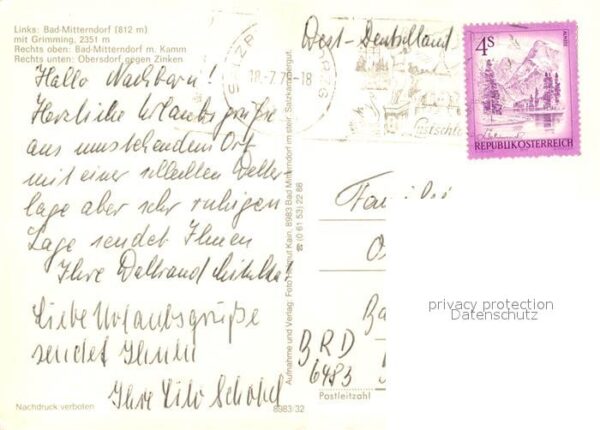 Links: Bad-Mitterndorf (812 m)
mit Grimming, 2351 m
Rechts oben: Bad-Mitterndorf m. Kamm
Rechts unten: Obersdorf gegen Zinken
Hallo Nachbarn!
Herzliche Urlaubsgrüße
aus umstehendem Ort
mit einer schlechten Wetter
lage aber sehr ruhigen
Lage sendet Ihnen
Ihre Waltraud
Liebe Urlaubsgrüße
sendet Ihnen
Ihre Lilo Schobel
Nachdruck verboten
8983/32
Aufnahme und Verlag: Foto Helmut Kain, 8983 Bad Mitterndorf im steir. Salzkammergut.
☎ (0 61 53) 22 86
West-Deutschland
18.-7.7 -18
4S
ALMSEE
REPUBLIK ÖSTERREICH
Fam
BRD
6483
Postleitzahl
privacy protection
Datenschutz